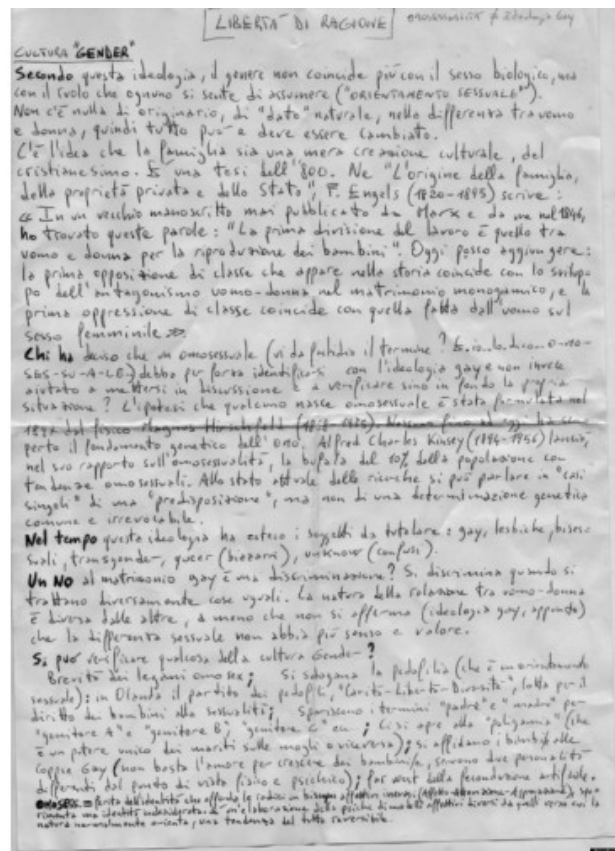 LIBERTÀ DI RAGIONE
OMOSESSUALITÀ ≠ Ideologia Gay
CULTURA "GENDER"
Secondo questa ideologia, il genere non coincide più con il sesso biologico, ma
con il ruolo che ognuno si sente di assumere ("ORIENTAMENTO SESSUALE").
Non c'è nulla di originario, di "dato" naturale, nella differenza tra uomo
e donna, quindi tutto può e deve essere cambiato.
C'è l'idea che la famiglia sia una mera creazione culturale, del
cristianesimo. È una tesi dell'800. Ne "L'origine della famiglia,
della proprietà privata e dello Stato", F. Engels (1820-1895) scrive:
« In un vecchio manoscritto mai pubblicato da Marx e da me nel 1846,
ho trovato queste parole: "La prima divisione del lavoro è quello tra
uomo e donna per la riproduzione dei bambini". Oggi posso aggiungere:
la prima opposizione di classe che appare nella storia coincide con lo svilup
po dell'antagonismo uomo-donna nel matrimonio monogamico, e la
prima oppressione di classe coincide con quella fatta dall'uomo sul
sesso femminile ».
Chi ha deciso che un omosessuale (vi dà fastidio il termine? Io lo dico O-MO-
SES-SU-A-LE) debba per forza identificarsi con l'ideologia gay e non invece
aiutato a mettersi in discussione e a verificare sino in fondo la propria
situazione? L'ipotesi che qualcuno nasce omosessuale è stata formulata nel
dal fisico Magnus Hirschfeld Nessuno fino ad oggi ha sco
perto il fondamento genetico dell'omo. Alfred Charles Kinsey (1894-1956) lanciò,
nel suo rapporto sull'omosessualità, la bufala del 10% della popolazione con
tendenze omosessuali. Allo stato attuale delle ricerche si può parlare in "casi
singoli" di una "predisposizione", ma non di una determinazione genetica
comune e irrevocabile.
Nel tempo questa ideologia ha esteso i soggetti da tutelare: gay, lesbiche, bises
suali, transgender, queer (bizzarri), unknow (confusi).
Un No al matrimonio gay è una discriminazione? Si discrimina quando si
trattano diversamente cose uguali. La natura della relazione tra uomo-donna
è diversa dalle altre, a meno che non si afferma (ideologia gay, appunto)
che la differenza sessuale non abbia più senso e valore.
Si può verificare qualcosa della cultura Gender?
Brevità dei legami omosex; Si sdogana la pedofilia (che è un orientamento
sessuale): in Olanda il partito dei pedofili, "Carità-Libertà-Diversità", lotta per il
diritto dei bambini alla sessualità; Spariscono i termini "padre" e "madre" per
"genitore A" e "genitore B", "genitore C" ecc.; Ci si apre alla "poligamia" (che
è un potere unico dei mariti sulle mogli o viceversa); si affidano i bimbi alle
coppie Gay (non basta l'amore per crescere dei bambini/e, servono due personalità
differenti dal punto di vista fisico e psichico); far west della fecondazione artificiale.
OMOSEX = ferita dell'identità che affonda le radici in bisogni affettivi inevasi (Affetto-Attenzione-Approvazione), spe
rimenta una identità indesiderata: è un'elaborazione della psiche di mobili affettivi diversi da quelli verso cui la
natura normalmente orienta, una tendenza del tutto reversibile.